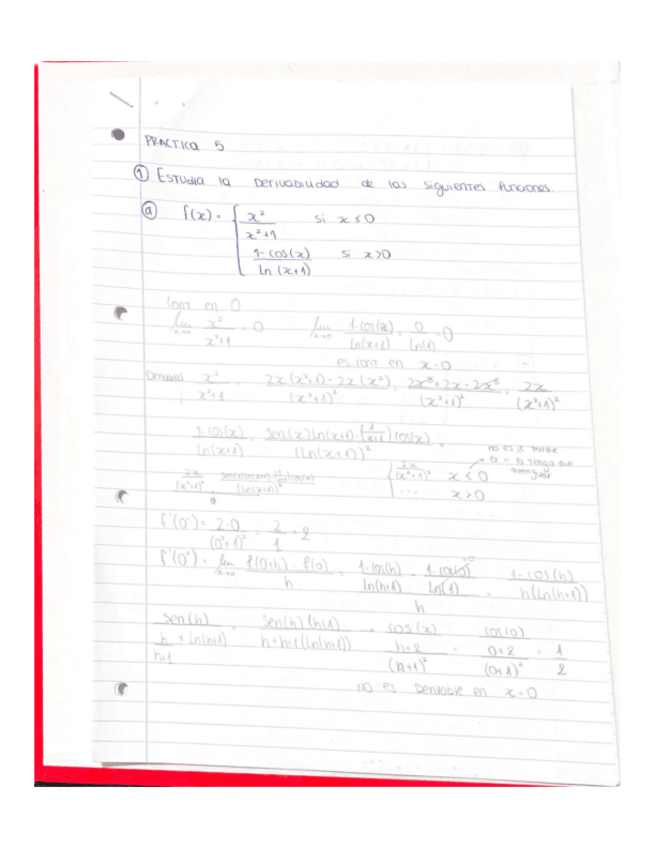 PRACTICA 5
① ESTUDIA la DERIVABILIDAD de las siguientes funciones.
ⓐ f(x) = { x²/(x²+1) si x ≤ 0
(1-cos(x))/(ln(x+1)) si x>0
Cont en 0
lim x→0 x²/(x²+1) = 0 lim x→0 (1-cos(x))/(ln(x+1)) = 0/ln(1) = 0
es cont en x=0
x²/(x²+1) = (2x(x²+1) - 2x(x²))/(x²+1)² = (2x³+2x-2x³)/(x²+1)² = 2x/(x²+1)²
(1-cos(x))/(ln(x)) = (sen(x)ln(x+1)-(1/(x+1))cos(x))/(ln(x+1))² =
no es ≤ porque
el = lo tengo que
averiguar
{ 2x/(x²+1)² x < 0
... x > 0
2x/(x²+1)²
0
f'(0⁻) = 2·0/(0²+1)² = 2/1 = 2
f'(0⁺) = lim h→0 (f(0+h) - f(0))/h = ((1-cos(h))/(ln(h+1)) - (1-cos(0))/(ln(1)))/h = (1-cos(h))/(h(ln(h+1)))
sen(h)/(h/(h+1) + ln(h+1)) = (sen(h)(h+1))/(h+h+1(ln(h+1))) → cos(x)/((h+2)/(h+1)²) = cos(0)/((0+2)/(0+1)²) = 1/2
no es Derivable en x=0